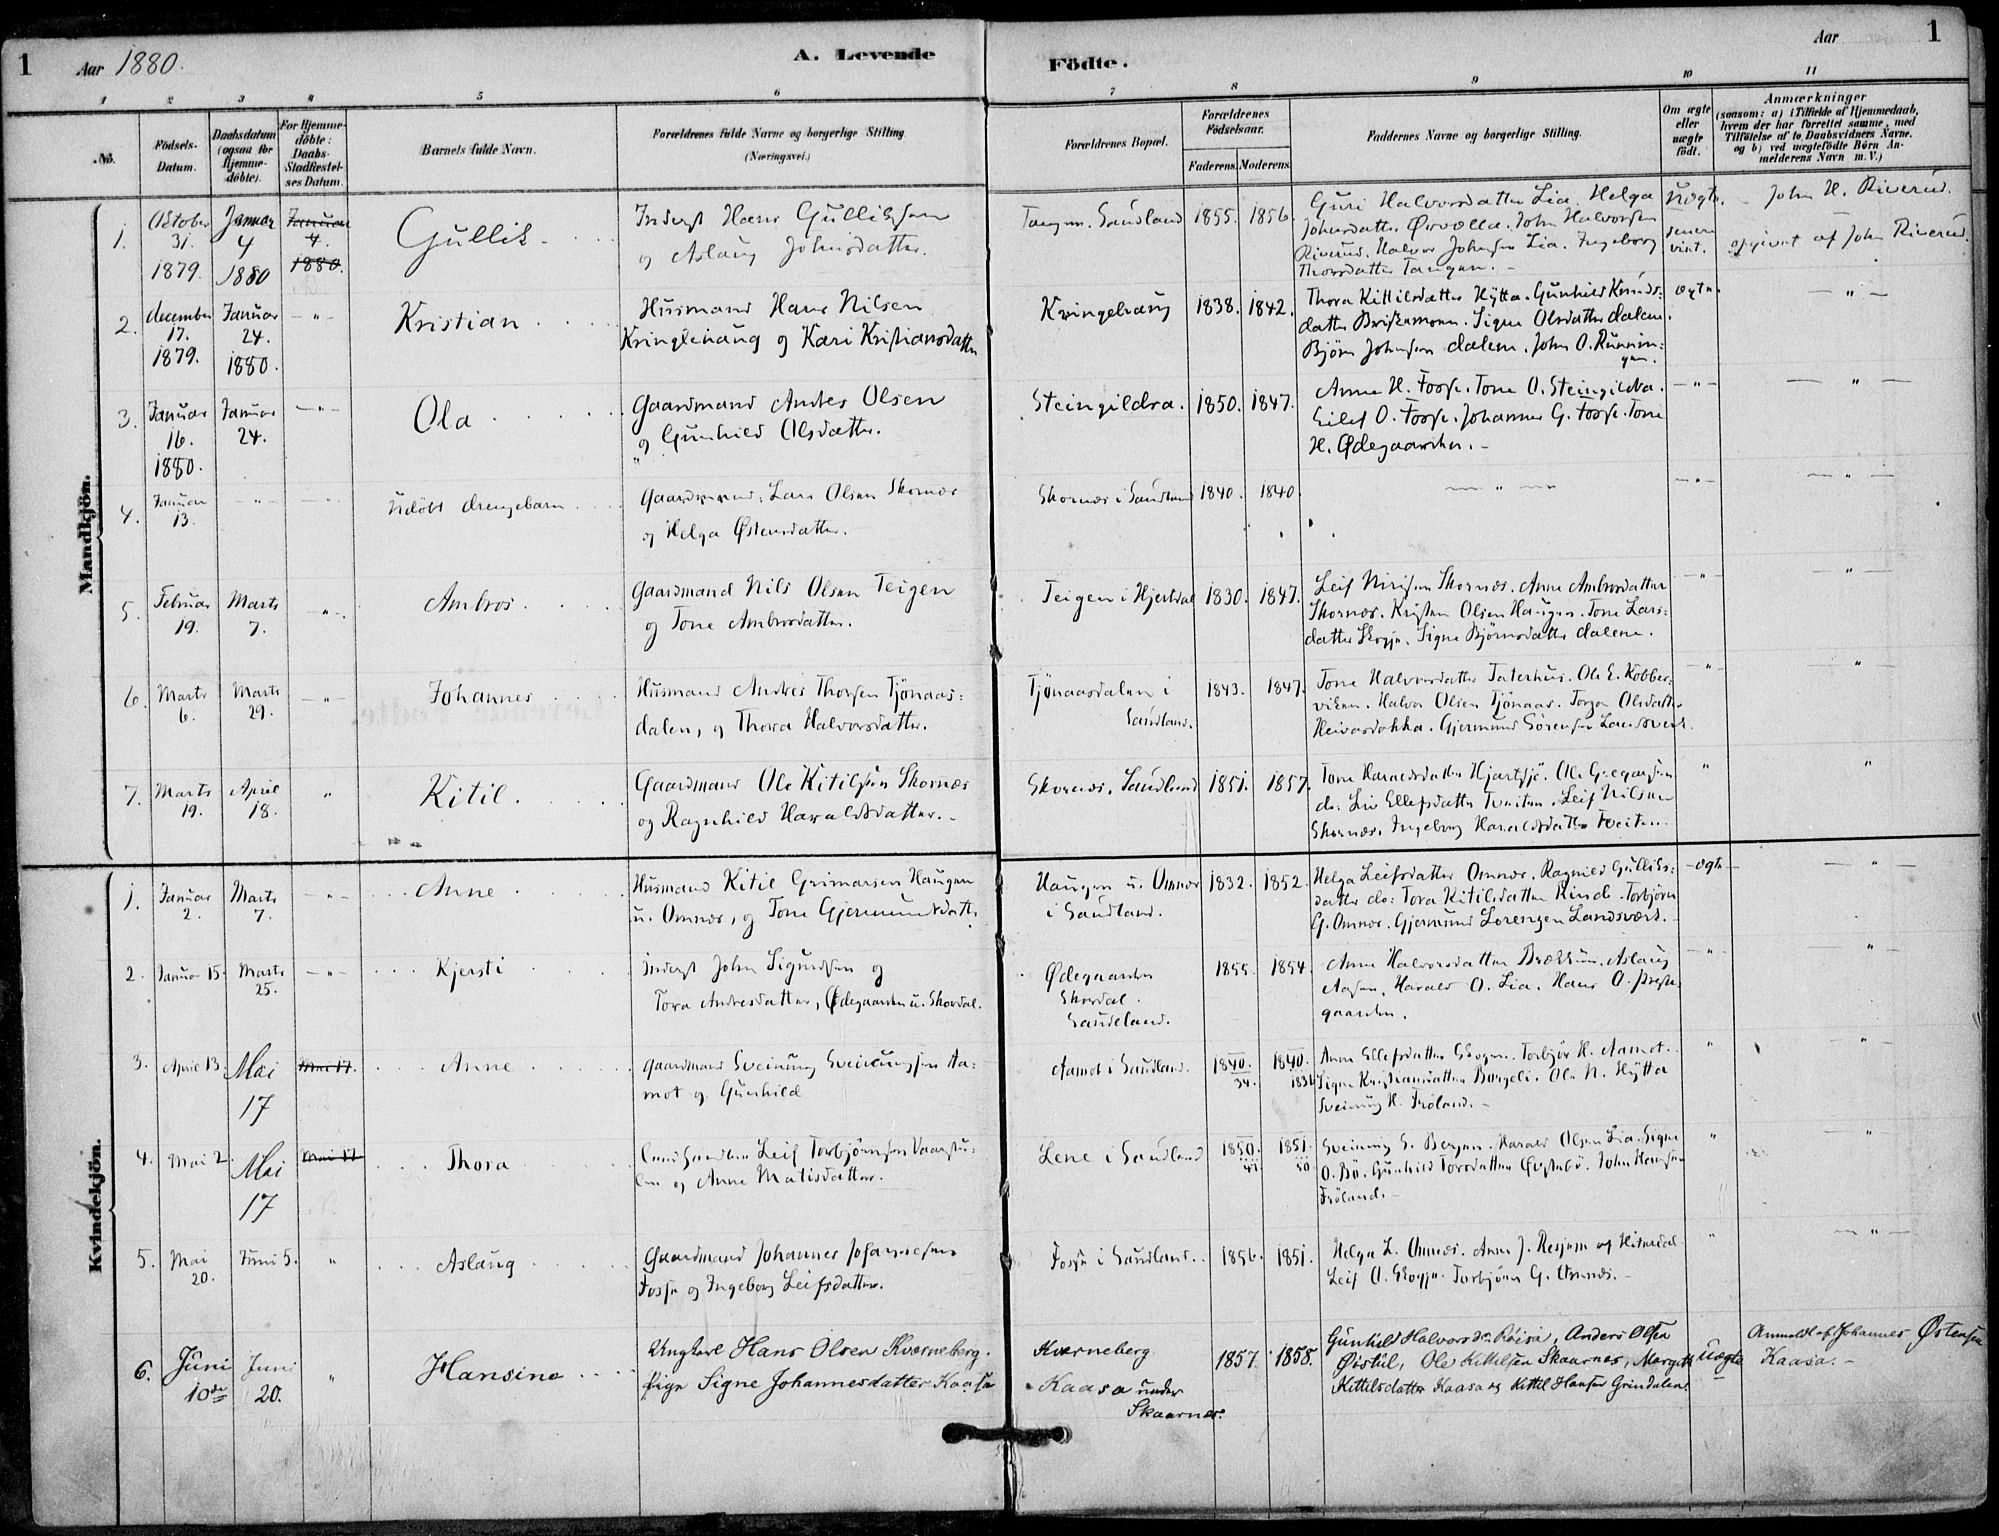 1 Aar 1880. A. Levende Födte. Aar 1
1 2 3 4 5 6 7 8 9 10 11
No.
Födsels-
Datum.
Daabsdatum
(ogsaa for
Hjemme-
döbte).
For Hjemme-
döbte:
Daabs-
Stadfæstel-
ses Datum.
Barnets fulde Navn.
Forældrenes fulde Navne og borgerlige Stilling.
(Næringsvei.)
Forældrenes Bopæl.
Forældrenes
Födselsaar.
Faderens. Moderens.
Faddernes Navne og borgerlige Stilling.
Om ægte
eller
uægte
födt.
Anmærkninger
(saasom: a) i Tilfælde af Hjemmedaab,
hvem der har forrettet samme, med
Tilföielse af to Daabsvidners Navne.
og b) ved uægtefödte Börn An-
melderens Navn m.V.)
Mandkjön.
1.
Oktober
31.
1879.
Januar
4
1880
Januar
4.
1880.
Gullik
Inderst Hans Gulliksen
og Aslaug Johnsdatter
Tangen. Sauland
1855. 1856.
Guri Halvorsdatter Lia. Helga
Johnsdatter Ørvælla. John Halvorsen
Riverud. Halvor Johnsen Lia. Ingeborg
Thorsdatter Tangen.
Uægte
John H. Riverud.
opgivet af John Riverud.
2.
December
17.
1879.
Januar
24.
1880.
- " -
Kristian
Husmand Hans Nilsen
Kringlehaug og Kari Kristiansdatter
Kringelhaug
1838. 1842.
Thora Kittilsdatter Hytta. Gunhild Knuds-
datter . Signe Olsdatter dalen.
Bjørn Johnsen dalen. John O. Runnin-
gen.
ægte.
- " -
3.
Januar
16.
1880.
Januar
24.
- " -
Ola
Gaardmand Andres Olsen
og Gunhild Olsdatter.
Steingildra.
1850. 1847.
Anne H. Fosse. Tone O. Steingildra.
Eilef O. Fosse. Johannes G. Fosse. Tone
H. Ødegaarden.
- " -
- " -
4.
Januar
13.
- " -
- " -
Udöbt drengebarn
Gaardmand: Lars Olsen Skornæs
og Helga Østensdatter.
Skornæs i Sauland
1840. 1840
- " -
- " -
- " -
5.
Februar
19.
Marts
7.
- " -
Ambros
Gaardmand Nils Olsen Teigen
og Tone Ambrosdatter.
Teigen i Hjertdal
1830. 1847.
Leif Nilsen Skornæs. Anne Ambrosdatter
Skornæs. Kristen Olsen Haugen. Tone Lars-
datter Skogje. Signe Bjørnsdatter dalene.
- " -
- " -
6.
Marts
6.
Marts
29.
- " -
Johannes
Husmand Andres Thorsen Tjönaas-
dalen, og Thora Halvorsdatter.
Tjönaasdalen i
Sauland.
1843. 1847.
Tone Halvorsdatter Taterhus. Ole E. Kobber-
viken. Halvor Olsen Tjönaas. Torgon Olsdatter
Heivasdokka. Gjermund Sörensen Landsverk.
- " -
- " -
7.
Marts
19.
April
18.
"
Kitil.
Gaardmand Ole Kitilsen Skornæs
og Ragnhild Haraldsdatter.
Skornæs, Sauland
1851. 1857.
Tone Haraldsdatter Hjartsjö. Ole Gregarsen
do: Liv Ellefsdatter Tveiten. Leif Nilsen
Skornæs. Ingeborg Haraldsdatter Tveiten.
"
"
Kvindekjön.
1.
Januar
2.
Marts
7.
- " -
Anne
Husmand Kitil Grimarsen Haugen
u. Omnæs, og Tone Gjermundsdatter
Haugen u. Omnæs
i Sauland.
1832. 1852.
Helga Leifsdatter Omnæs. Ragnild Gulliks-
datter do: Tora Kitilsdatter Rinde. Torbjörn
G. Omnæs. Gjermund Lorenzen Landsværk.
ægte
- " -
2.
Januar 15.
Marts
25.
- " -
Kjersti
Inderst John Sigurdsen og
Tora Andresdatter, Ødegaarden u. Skordal.
Ødegaarden
Skordal.
Saudeland.
1855. 1854.
Anne Halvorsdatter Brækkum. Aslaug
Aasen, Harald O. Lia. Hans O. Preste-
gaarden.
"
"
3.
April 13.
Mai
17
Mai 17.
Anne
Gaardmand Sveinung Sveinungsen Aa-
mot og Gunhild
Aamot i Sauland.
1840. 1840.
34. 1834
Anne Ellefsdatter Skogen. Torbjör H. Aamot.
Signe Kristiansdatter Bergeli. Ole N. Hytta
Sveinung H. Fröland.
"
- " -
4.
Mai 2.
Mai
17
Mai 17.
Thora
Leif Torbjörnsen Vaarstu-
len og Anne Matisdatter.
Lene i Sauland
1850. 1851.
47. 50.
Sveinung S. Bergen. Harald Olsen Lia. Signe
O. Bö. Gunhild Torsdatter Øvstebö. John Hansen
Fröland.
"
"
5.
Mai
20.
Juni 5.
"
Aslaug
Gaardmand Johannes Johannesen
Fosse og Ingeborg Leifsdatter.
Fosse i Sauland.
1856. 1851.
Helga L. Omnæs. Anne J. Resjem af Hiterdal
Leif O. Skogje. Torbjörn G. Omnæs.
"
- " -
6.
Juni
10de
Juni
20.
"
Hansine
Ungkarl Hans Olsen Kværneberg.
Pige Signe Johannesdatter Kaasa
Kværneberg
Kaasa under
Skaarnæs.
1857. 1858.
Gunhild Halvorsdr. Röisa, Anders Olsen
Øistul, Ole Kittilsen Skaarnæs, Margith
Kittilsdatter Kaasa og Kittil Hansen Grindalen.
Uægte
Anmeldt af Johannes Østensen
Kaasa.